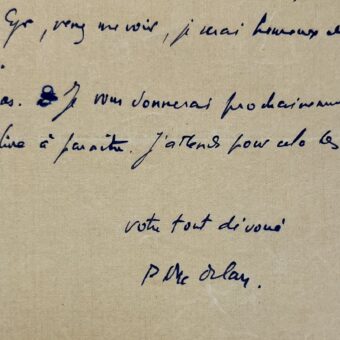 Eyr, venez me voir, je serai heureux de
as. Je vous donnerai prochainement
livre à paraître. J'attends pour cela les
votre tout dévoué
P Mac Orlan.